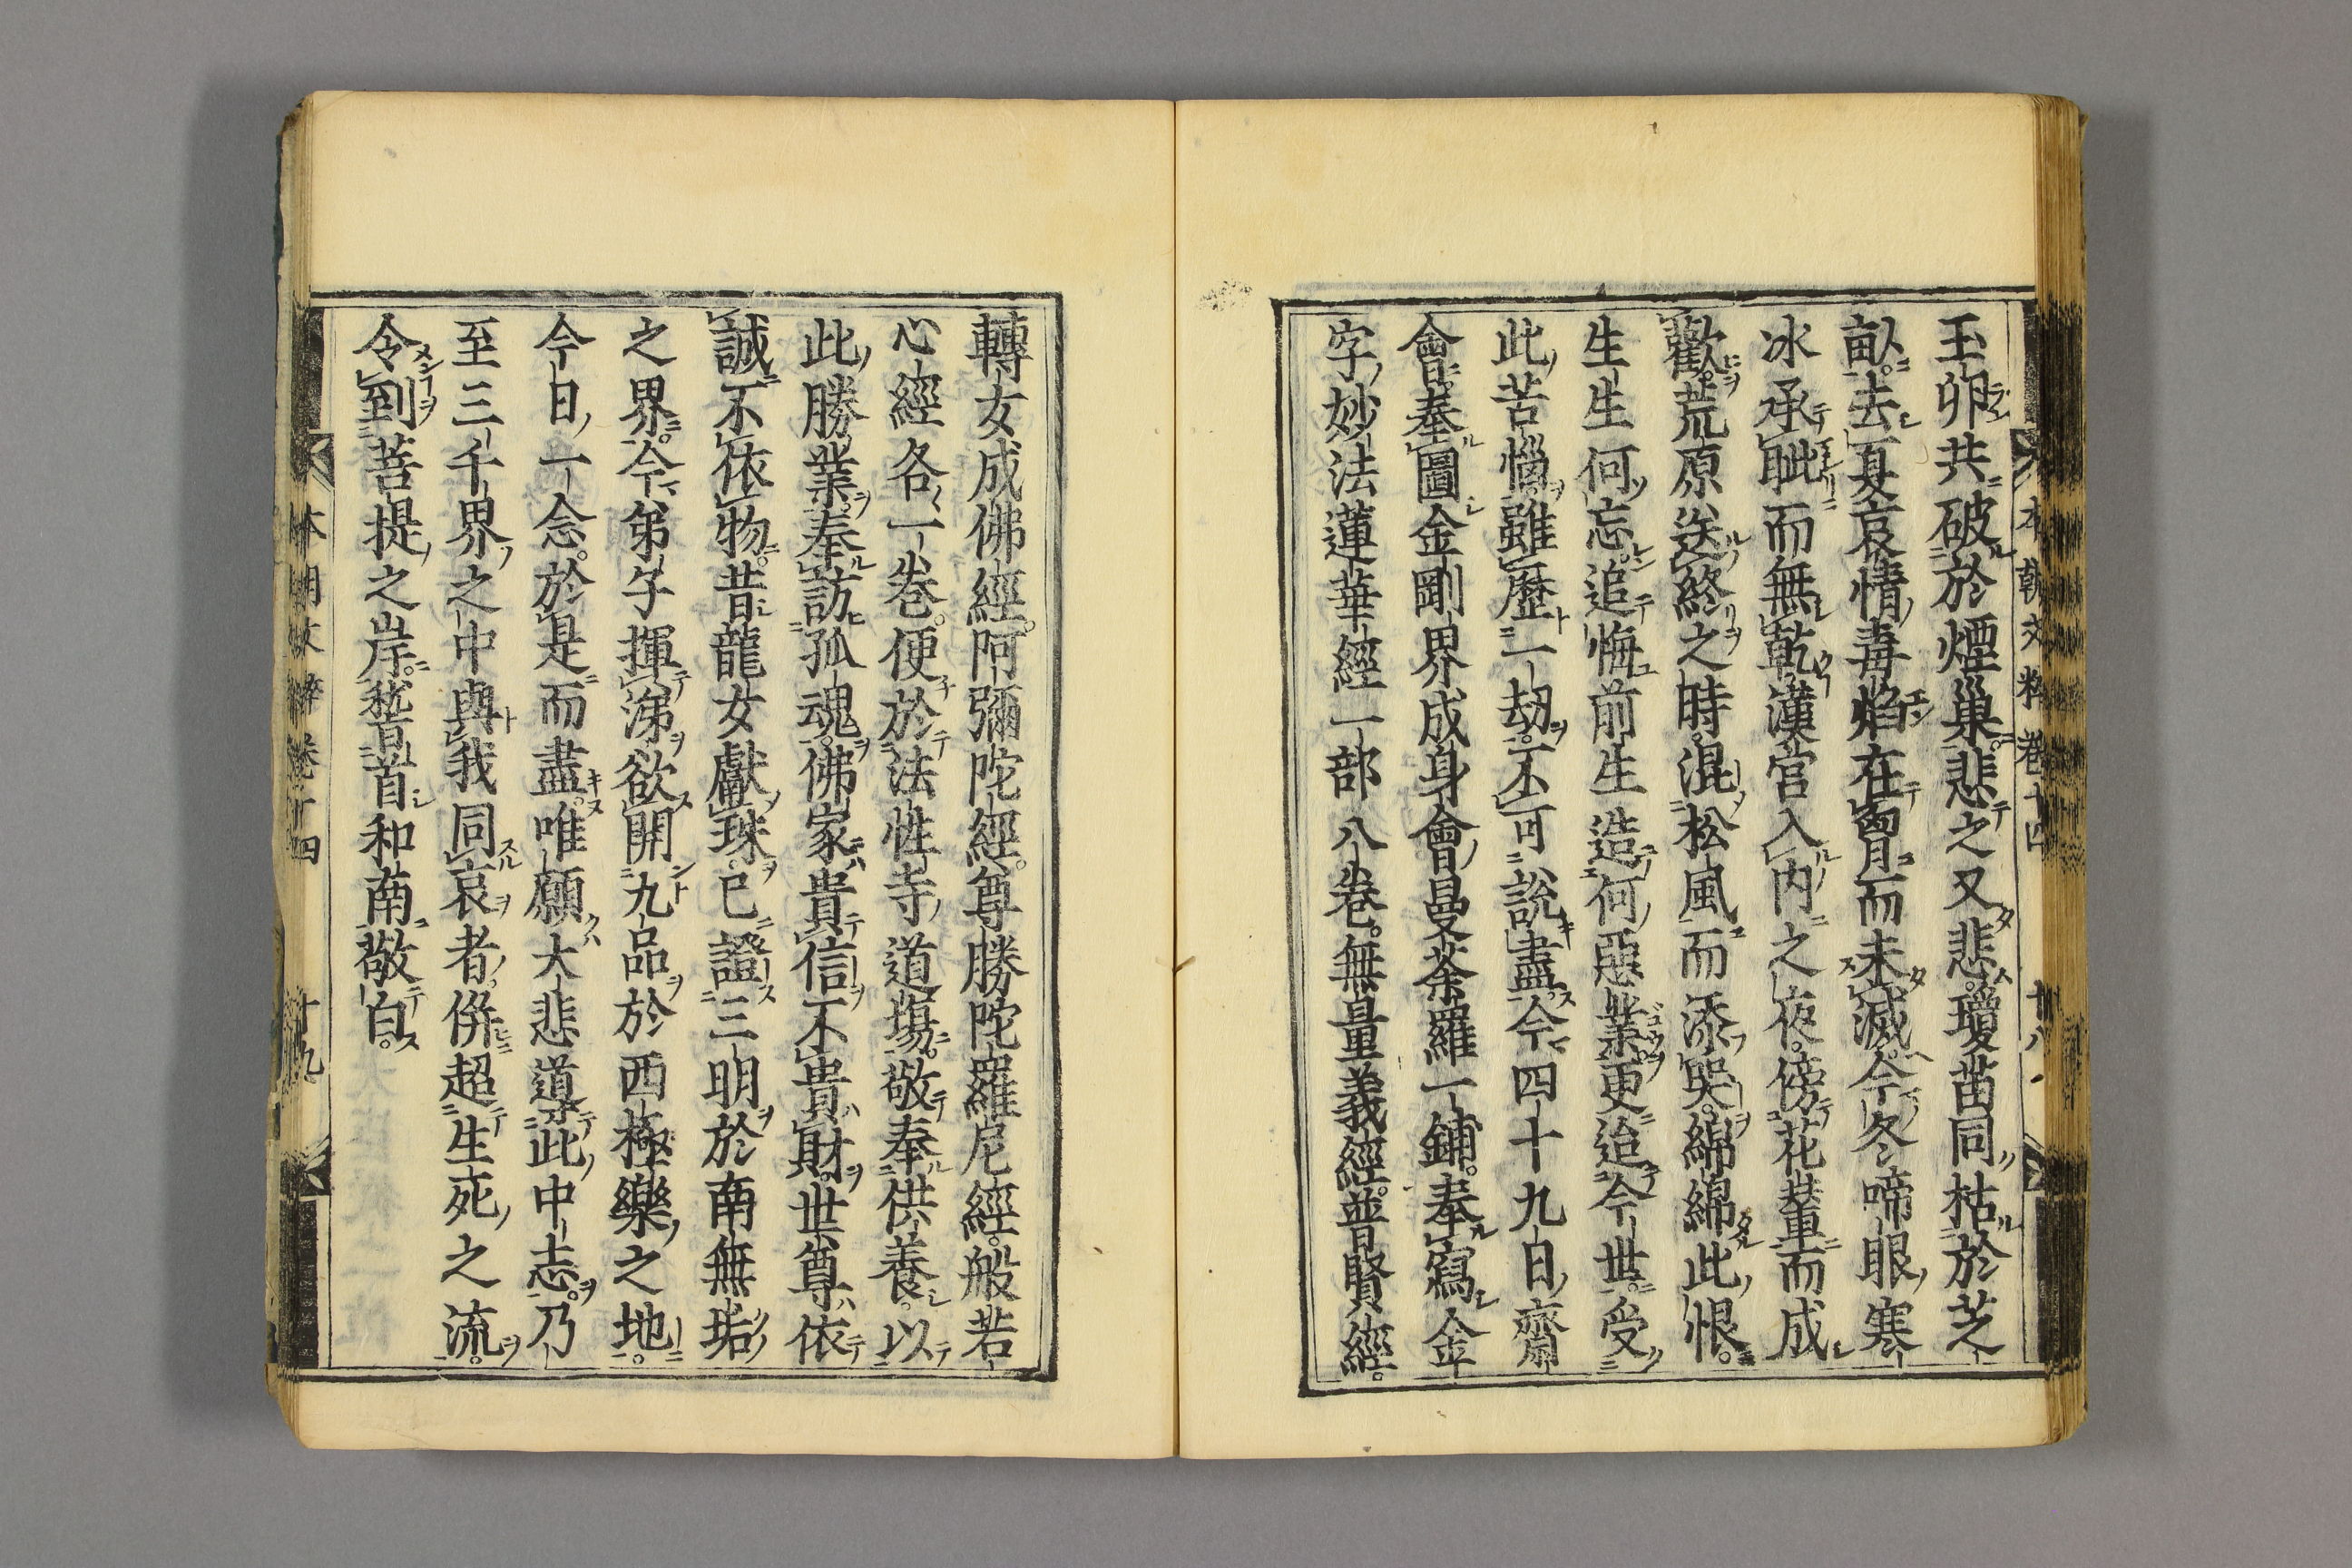 玉卵共破於煙巢。悲之又悲。瓊苗同枯於芝
畝。去夏哀情毒焰在胷而未滅。今冬啼眼寒
冰承眦而無乾漢宮入内之夜。傍花輦而成
歡。荒原送終之時。混松風而添哭。綿綿此恨。
生生何忘。追悔前生造何惡業。更迨今世。受
此苦惱。雖歷一劫。不可說盡。今四十九日齋
會。奉圖金剛界成身會曼荼羅一鋪。奉寫金
字妙法蓮華經一部八卷。無量義經。普賢經。
轉女成佛經。阿彌陀經。尊勝陀羅尼經。般若
心經各一卷。便於法性寺道場。敬奉供養。以
此勝業。奉訪孤魂。佛家貴信不貴財。世尊依
誠不依物。昔龍女獻珠。已證三明於南無垢
之界。今弟子揮涕欲開九品於西極樂之地。
今日一念。於是而盡。唯願大悲導此中志。乃
至三千界之中與我同哀者。併超生死之流。
令到菩提之岸。稽首和南敬白。
本朝文粹卷十四 廿八
本朝文粹卷十四 廿九